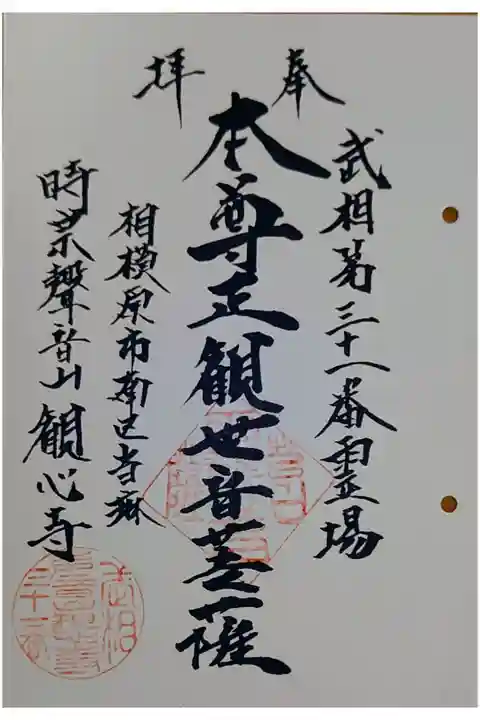 奉拝
武相第三十一番霊場
本尊正観世音菩薩
相模原市南区当麻
時宗聲音山観心寺